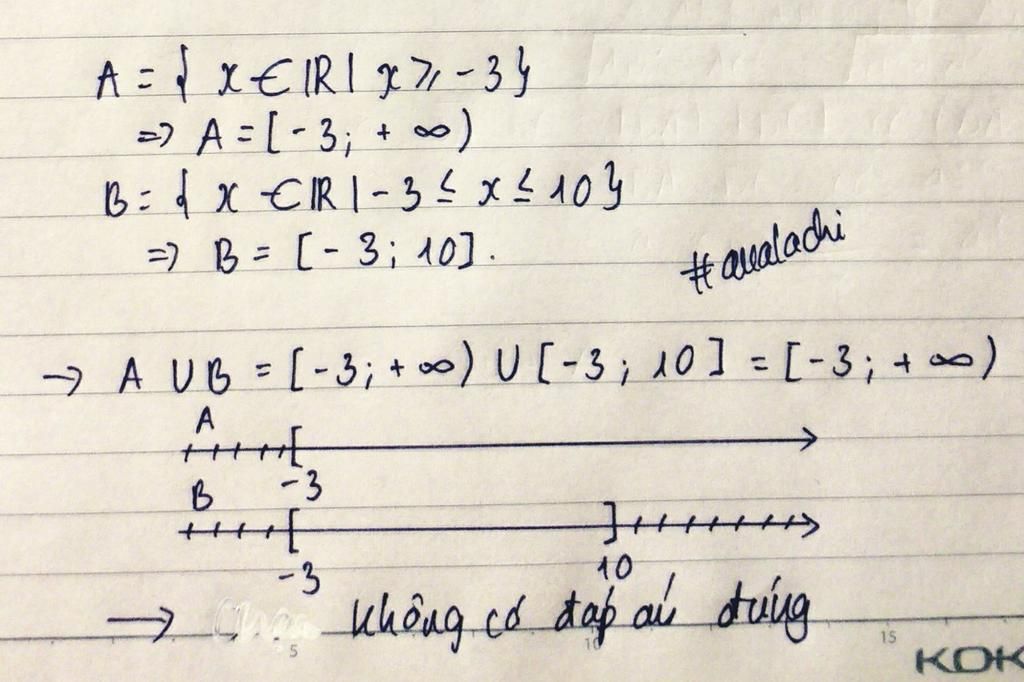 A = { x ∈ |R | x ⩾ -3}
=> A = [-3; + ∞)
B = { x ∈ |R | -3 ≤ x ≤ 10}
=> B = [-3; 10].
→ A ∪ B = [-3; + ∞) ∪ [-3; 10] = [-3; + ∞)
A
-3
B
-3 10
→ không có đáp án đúng
5 10 15
KOK